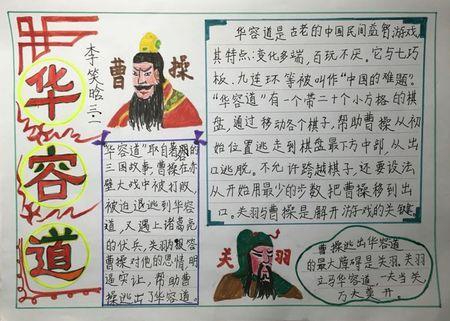 华容道
李笑晗
三.1
曹操
"华容道"取自著名的
三国故事,曹操在赤
壁大战中被打败,
被迫退逃到华容
道,又遇上诸葛亮
的伏兵,关羽为报答
曹操对他的恩情,明
逼实让,帮助曹
操逃出了华容道。
华容道是古老的中国民间益智游戏,
其特点:变化多端,百玩不厌。它与七巧
板、九连环等被叫作"中国的难题"。
"华容道"有一个带二十个小方格的棋
盘,通过移动各个棋子,帮助曹操从初
始位置逃走到棋盘最下方中部,从出
口逃脱。不允许跨越棋子,还要设法
从开始用最少的步数把曹操移到出
口。关羽与曹操是解开游戏的关键。
关羽
曹操逃出华容道
的最大障碍是关羽,关羽
立马华容道,一夫当关,
万夫莫开。